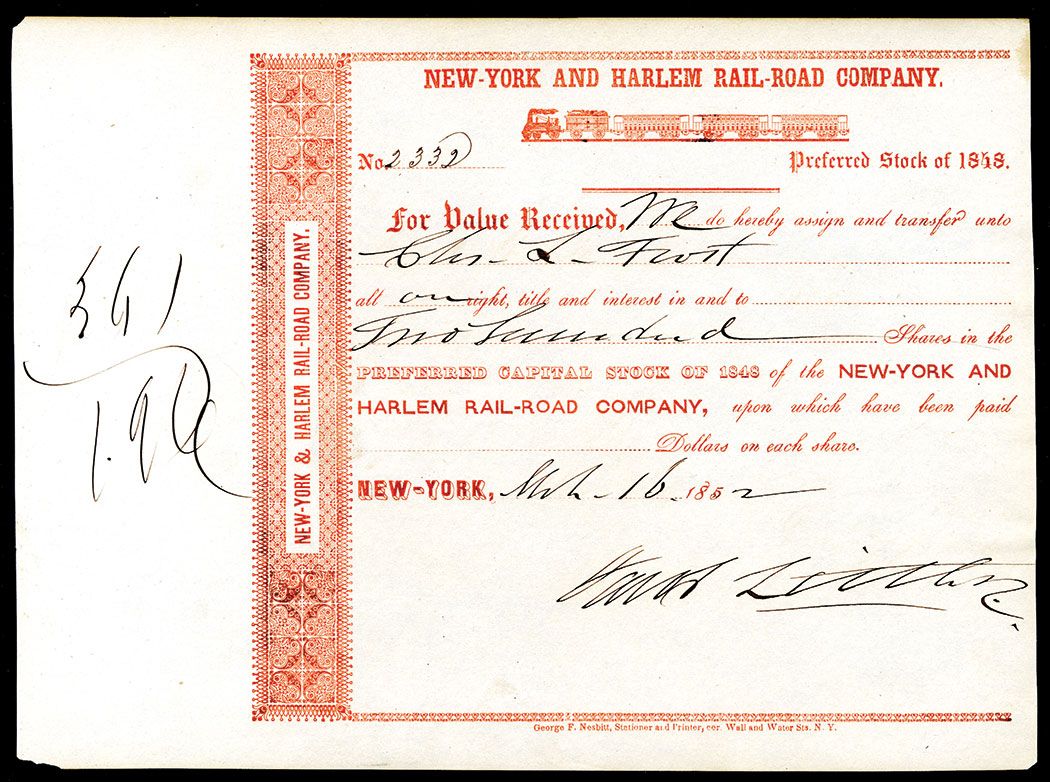 NEW-YORK AND HARLEM RAIL-ROAD COMPANY.
No 2332
Preferred Stock of 1848.
For Value Received, We do hereby assign and transfer unto
Chs. L. Frost
all our right, title and interest in and to
Two hundred Shares in the
PREFERRED CAPITAL STOCK OF 1848 of the NEW-YORK AND
HARLEM RAIL-ROAD COMPANY, upon which have been paid
Dollars on each share.
NEW-YORK, Mch. 16 1852
NEW-YORK & HARLEM RAIL-ROAD COMPANY.
George F. Nesbitt, Stationer and Printer, cor. Wall and Water Sts. N. Y.